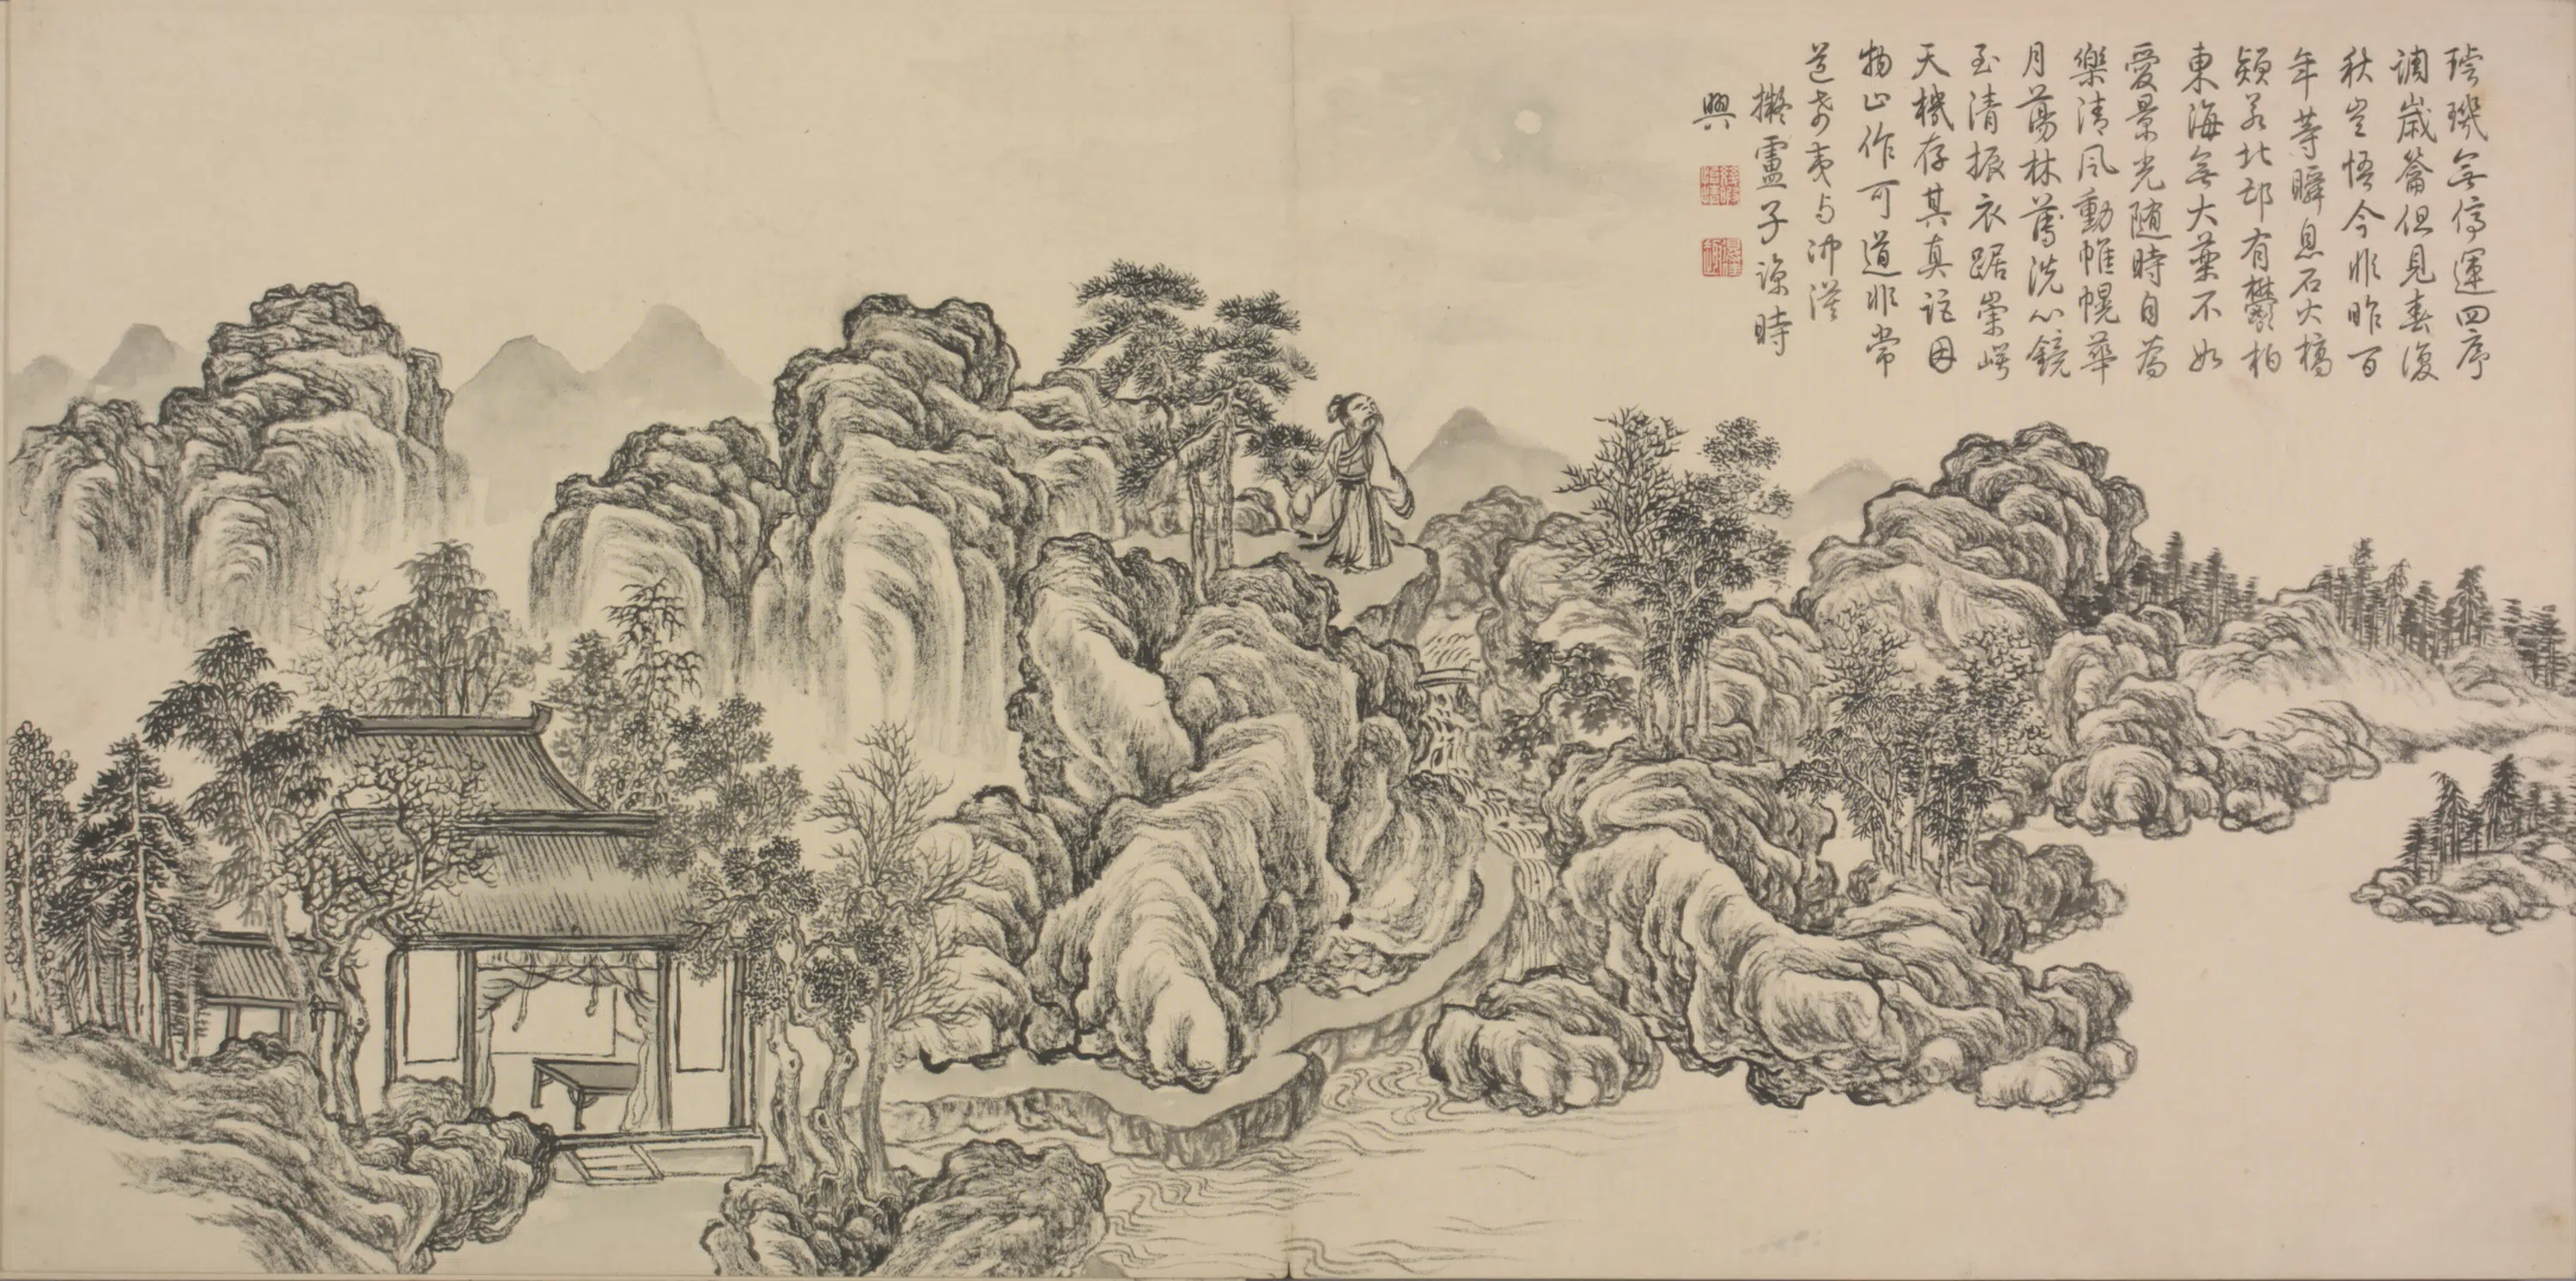 璿璣無停運四序
調歲籥但見春復
秋豈悟今非昨百
年等瞬息石火槁
頴若北邙有鬱柏
東海無大藥不如
愛景光隨時自為
樂清風動帷幌華
月蕩林薄洗心鏡
至清振衣踞崇崿
天機存其真詎因
物止作可道非常
道希夷与沖漠
擬盧子諒時
興